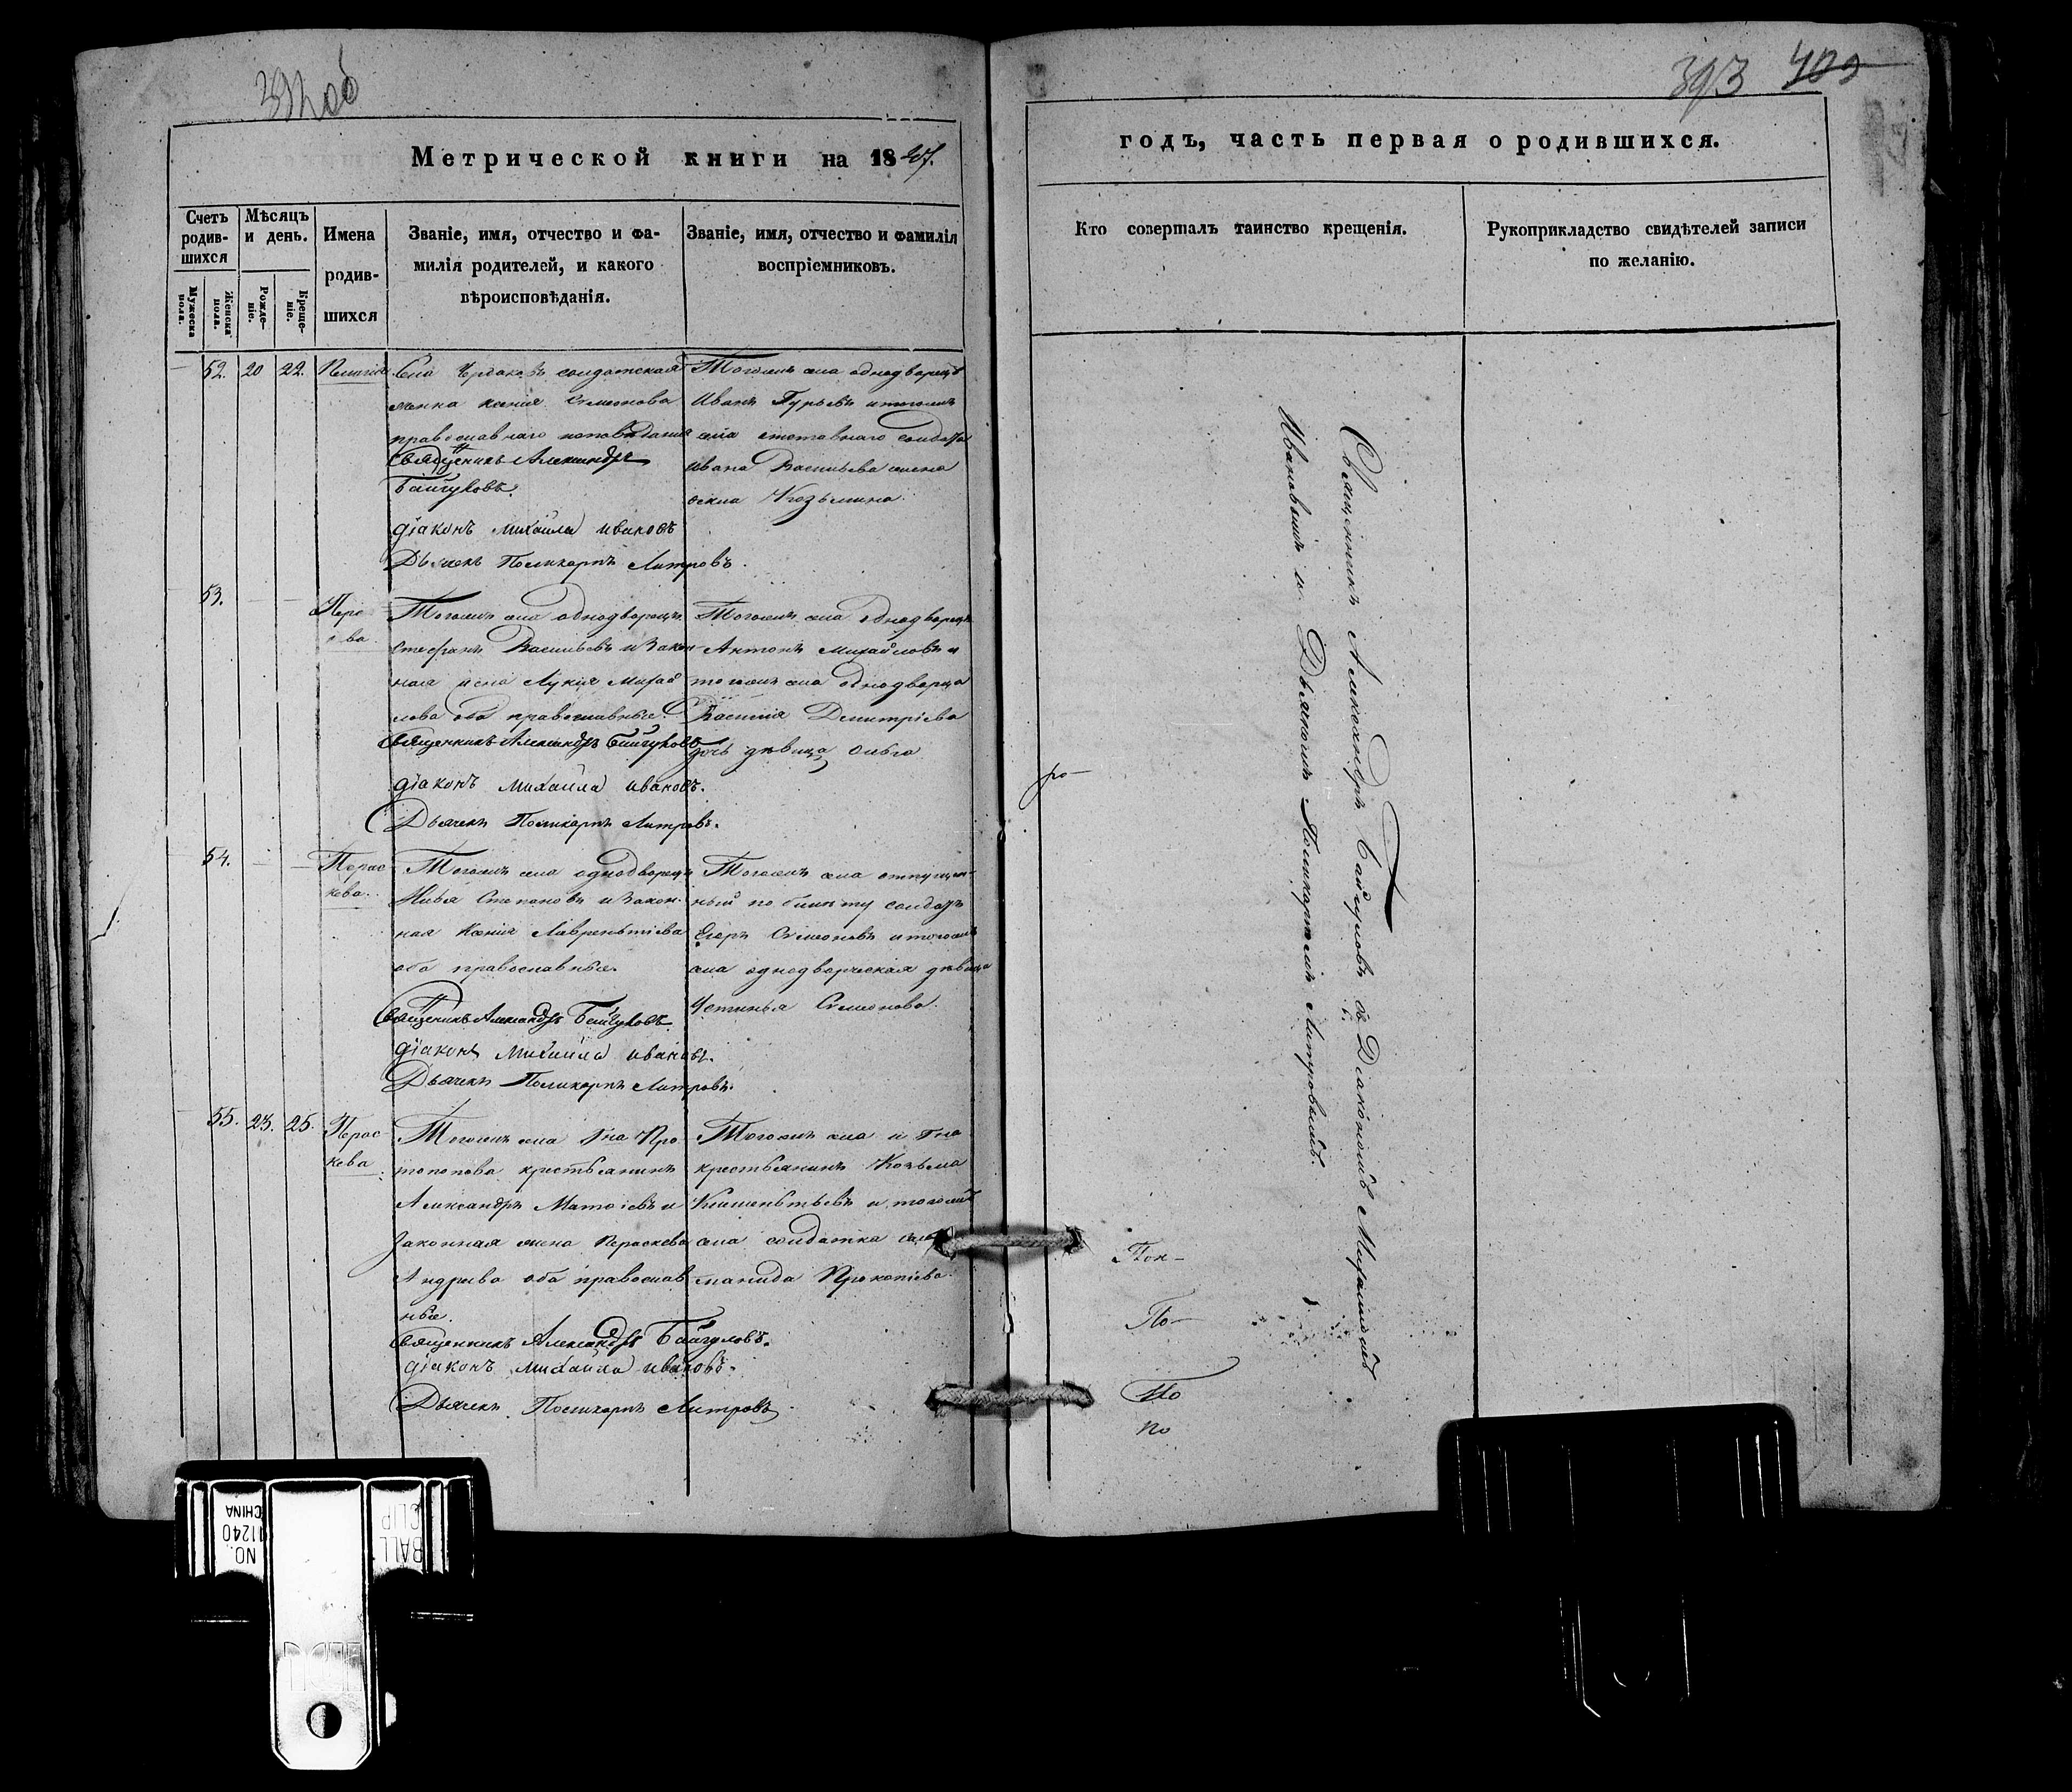 392 об
Метрической книги на 1847.
Счетъ родив-
шихся
Мѣсяцъ
и день.
Мужеска
пола.
Женска
пола.
Рожде-
ніе.
Креще-
ніе.
Имена
родив-
шихся
Званіе, имя, отчество и фа-
милія родителей, и какого
вѣроисповѣданія.
Званіе, имя, отчество и фамилія
воспріемниковъ.
52. 20 22. Пелагія
Села Чердаковъ солдатская
женка Ксенія Семонова
православнаго исповѣданія
Священникъ Александръ
Байгуловъ.
діаконъ Михаила Ивановъ
Дьячекъ Поликарпъ Литровъ.
Тогожъ села однодворецъ
Иванъ Гурьевъ и тогожъ
села отставнаго солдата
Ивана Васильева жена
Козьмина.
53.
Тогожъ села однодворецъ
Стефанъ Васильевъ и закон-
ная жена Лукія Михай
лова оба православные.
Священникъ Александръ Байгуловъ
діаконъ Михаила Ивановъ.
Дьячекъ Поликарпъ Литровъ.
Тогожъ села однодворецъ
Антонъ Михайловъ и
тогожъ села однодворца
Василія Димитріева
дочь дѣвица Ольга
54. Парас
кева.
Тогожъ села однодворецъ
Илья Степановъ и закон-
ная Ксенія Лаврентіева
оба православные.
Священникъ Александръ Байгуловъ.
діаконъ Михаила Ивановъ.
Дьячекъ Поликарпъ Литровъ.
Тогожъ села отпущен-
ный по билету солдатъ
Егоръ Семоновъ и тогожъ
села однодворческая дѣвица
Устинья Семонова.
55. 23. 25. Парас
кева
Тогожъ села Гна Про
топопова крестьянинъ
Александръ Матвіевъ и
законная жена Параскева
Андреева оба православ
ные.
Священникъ Александръ Байгуловъ.
діаконъ Михаила Ивановъ.
Дьячекъ Поликарпъ Литровъ
Тогожъ села и Гна
крестьянинъ Козьма
Климентьевъ и тогожъ
села солдатка Соло
манида Прокопіева.
393 409
годъ, часть первая о родившихся.
Кто совершалъ таинство крещенія.
Рукоприкладство свидѣтелей записи
по желанію.
Священникъ Александръ Байгуловъ съ Діакономъ Михаиломъ
Ивановымъ и Дьячкомъ Поликарпомъ Литровымъ.
ро-
Пок-
По-
По
по
NO.
11240
CHINA
BALL
CLIP